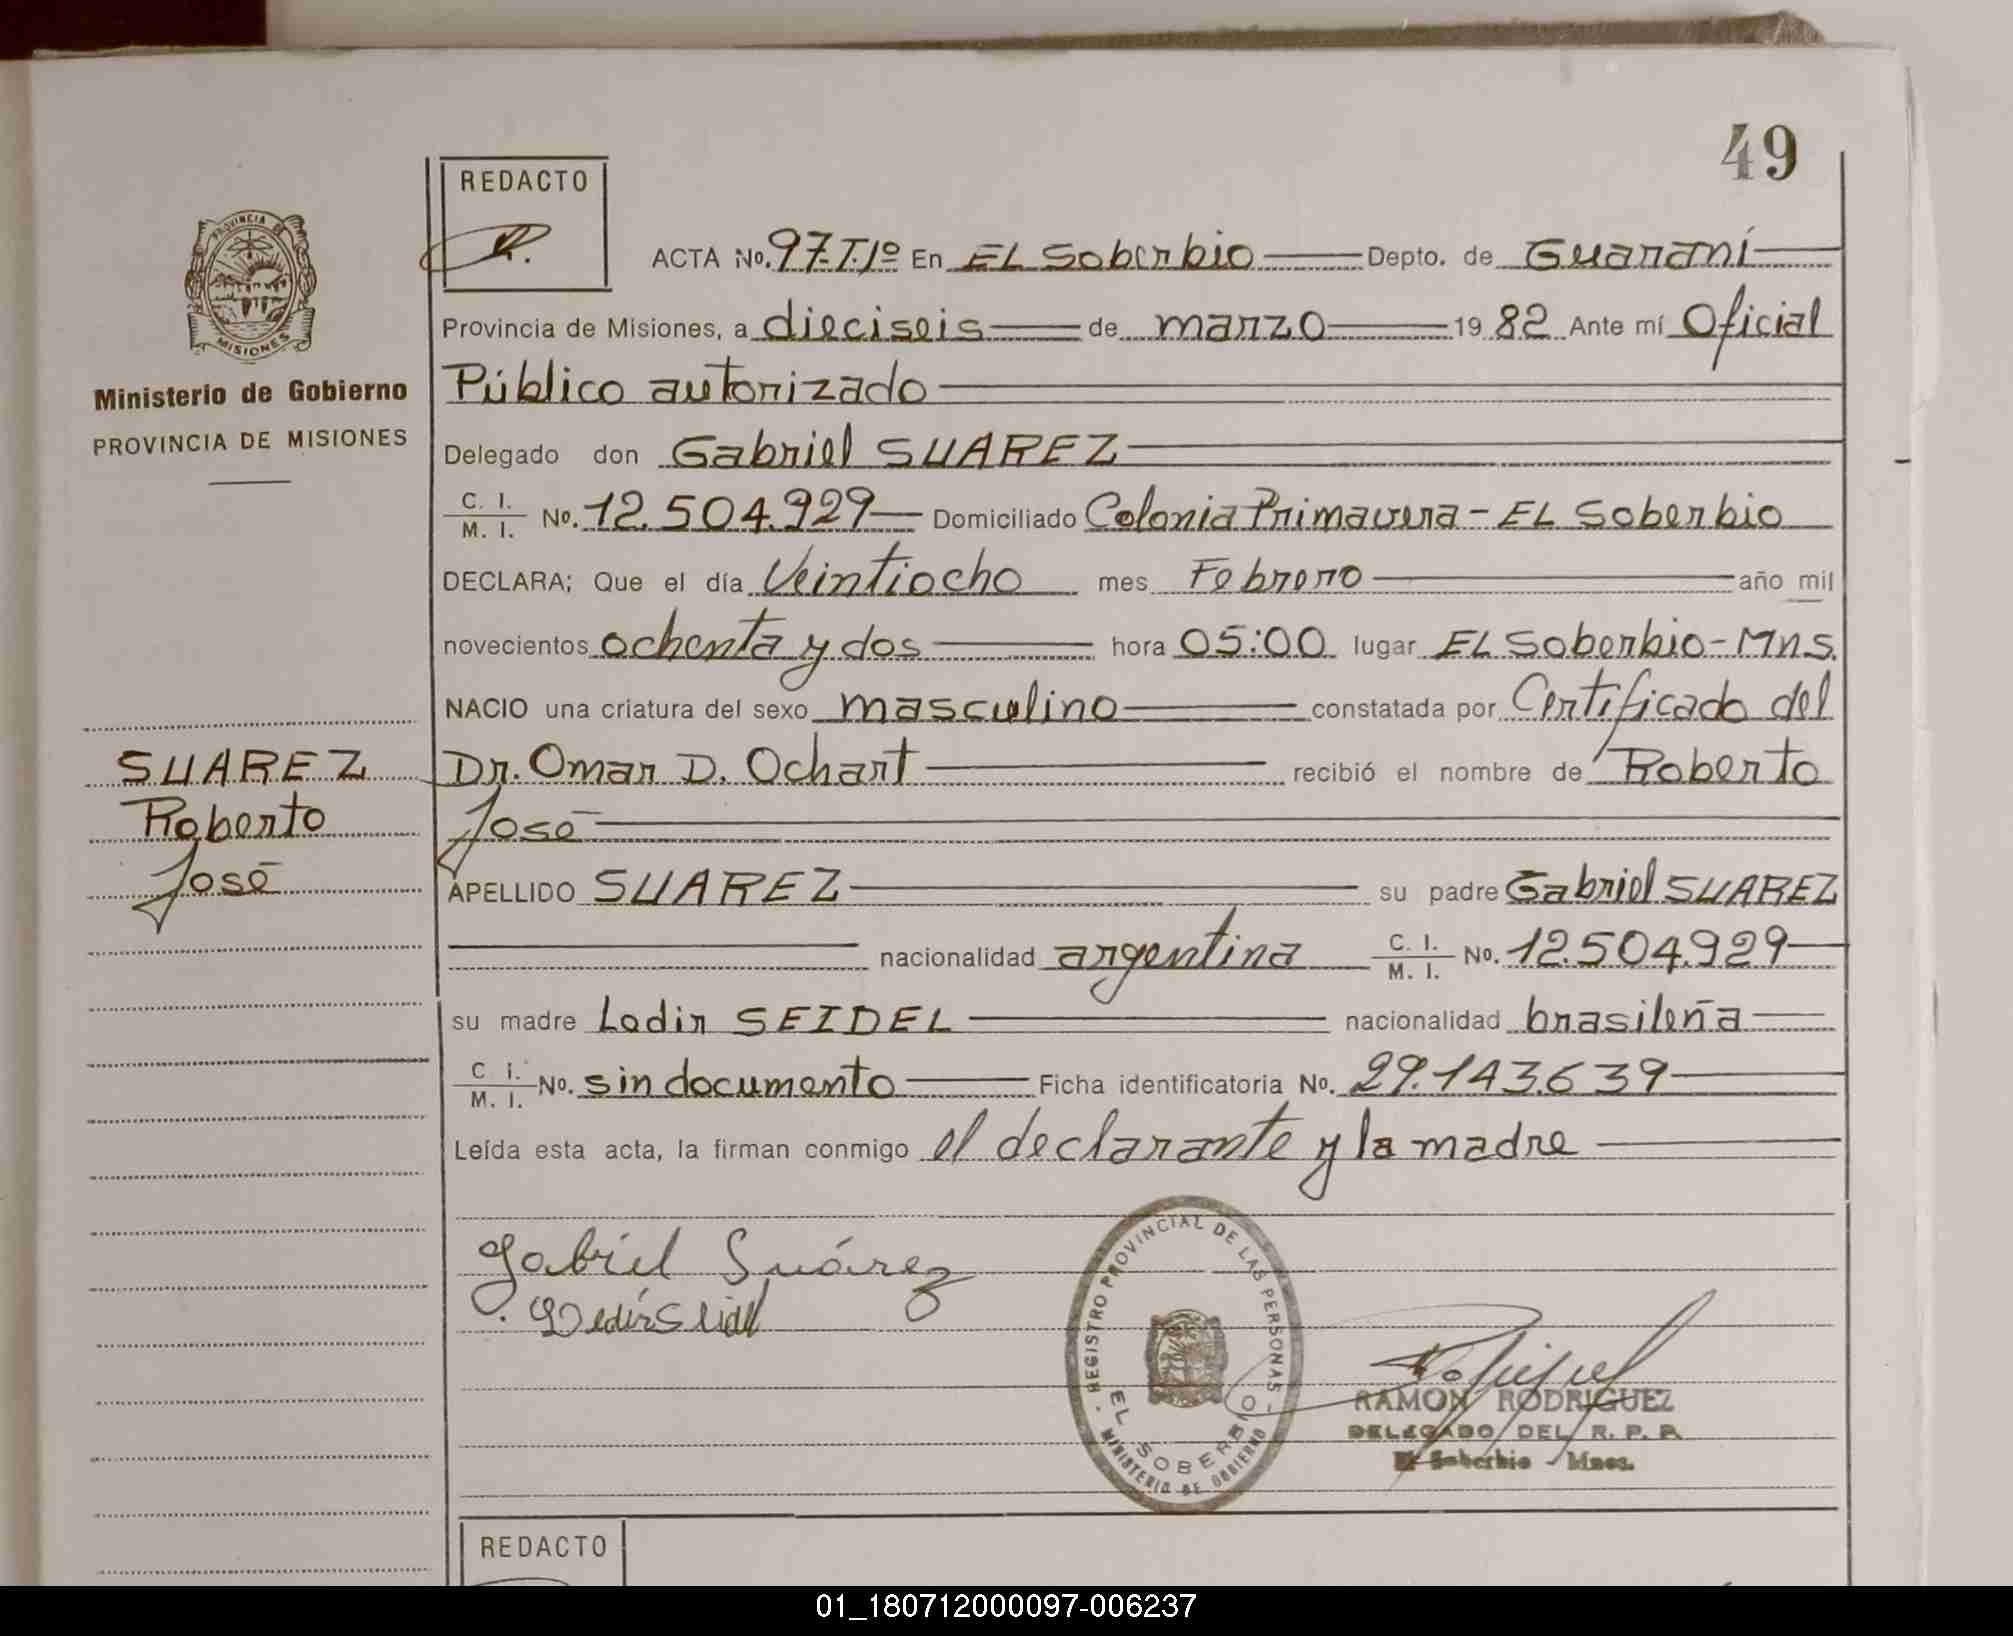 49
REDACTO
PROVINCIA DE
MISIONES
Ministerio de Gobierno
PROVINCIA DE MISIONES
ACTA No. 97.T.1º En EL Soberbio Depto. de Guaraní
Provincia de Misiones, a dieciseis de marzo 1982 Ante mí Oficial
Público autorizado
Delegado don Gabriel SUAREZ
C. I. / M. I. No. 12.504.929 Domiciliado Colonia Primavera - EL Soberbio
DECLARA; Que el día Veintiocho mes Febrero año mil
novecientos ochenta y dos hora 05:00 lugar EL Soberbio - Mns.
NACIO una criatura del sexo masculino constatada por Certificado del
Dr. Omar D. Ochart recibió el nombre de Roberto
José
APELLIDO SUAREZ su padre Gabriel SUAREZ
nacionalidad argentina C. I. / M. I. No. 12.504.929
su madre Ladir SEIDEL nacionalidad brasileña
C. I. / M. I. No. sin documento Ficha identificatoria No. 29.143.639
Leída esta acta, la firman conmigo el declarante y la madre
SUAREZ
Roberto
José
Gabriel Suárez
REGISTRO PROVINCIAL DE LAS PERSONAS
EL SOBERBIO
MINISTERIO DE GOBIERNO
RAMON RODRIGUEZ
DELEGADO DEL R. P. P.
El Soberbio - Mnes.
REDACTO
01_180712000097-006237